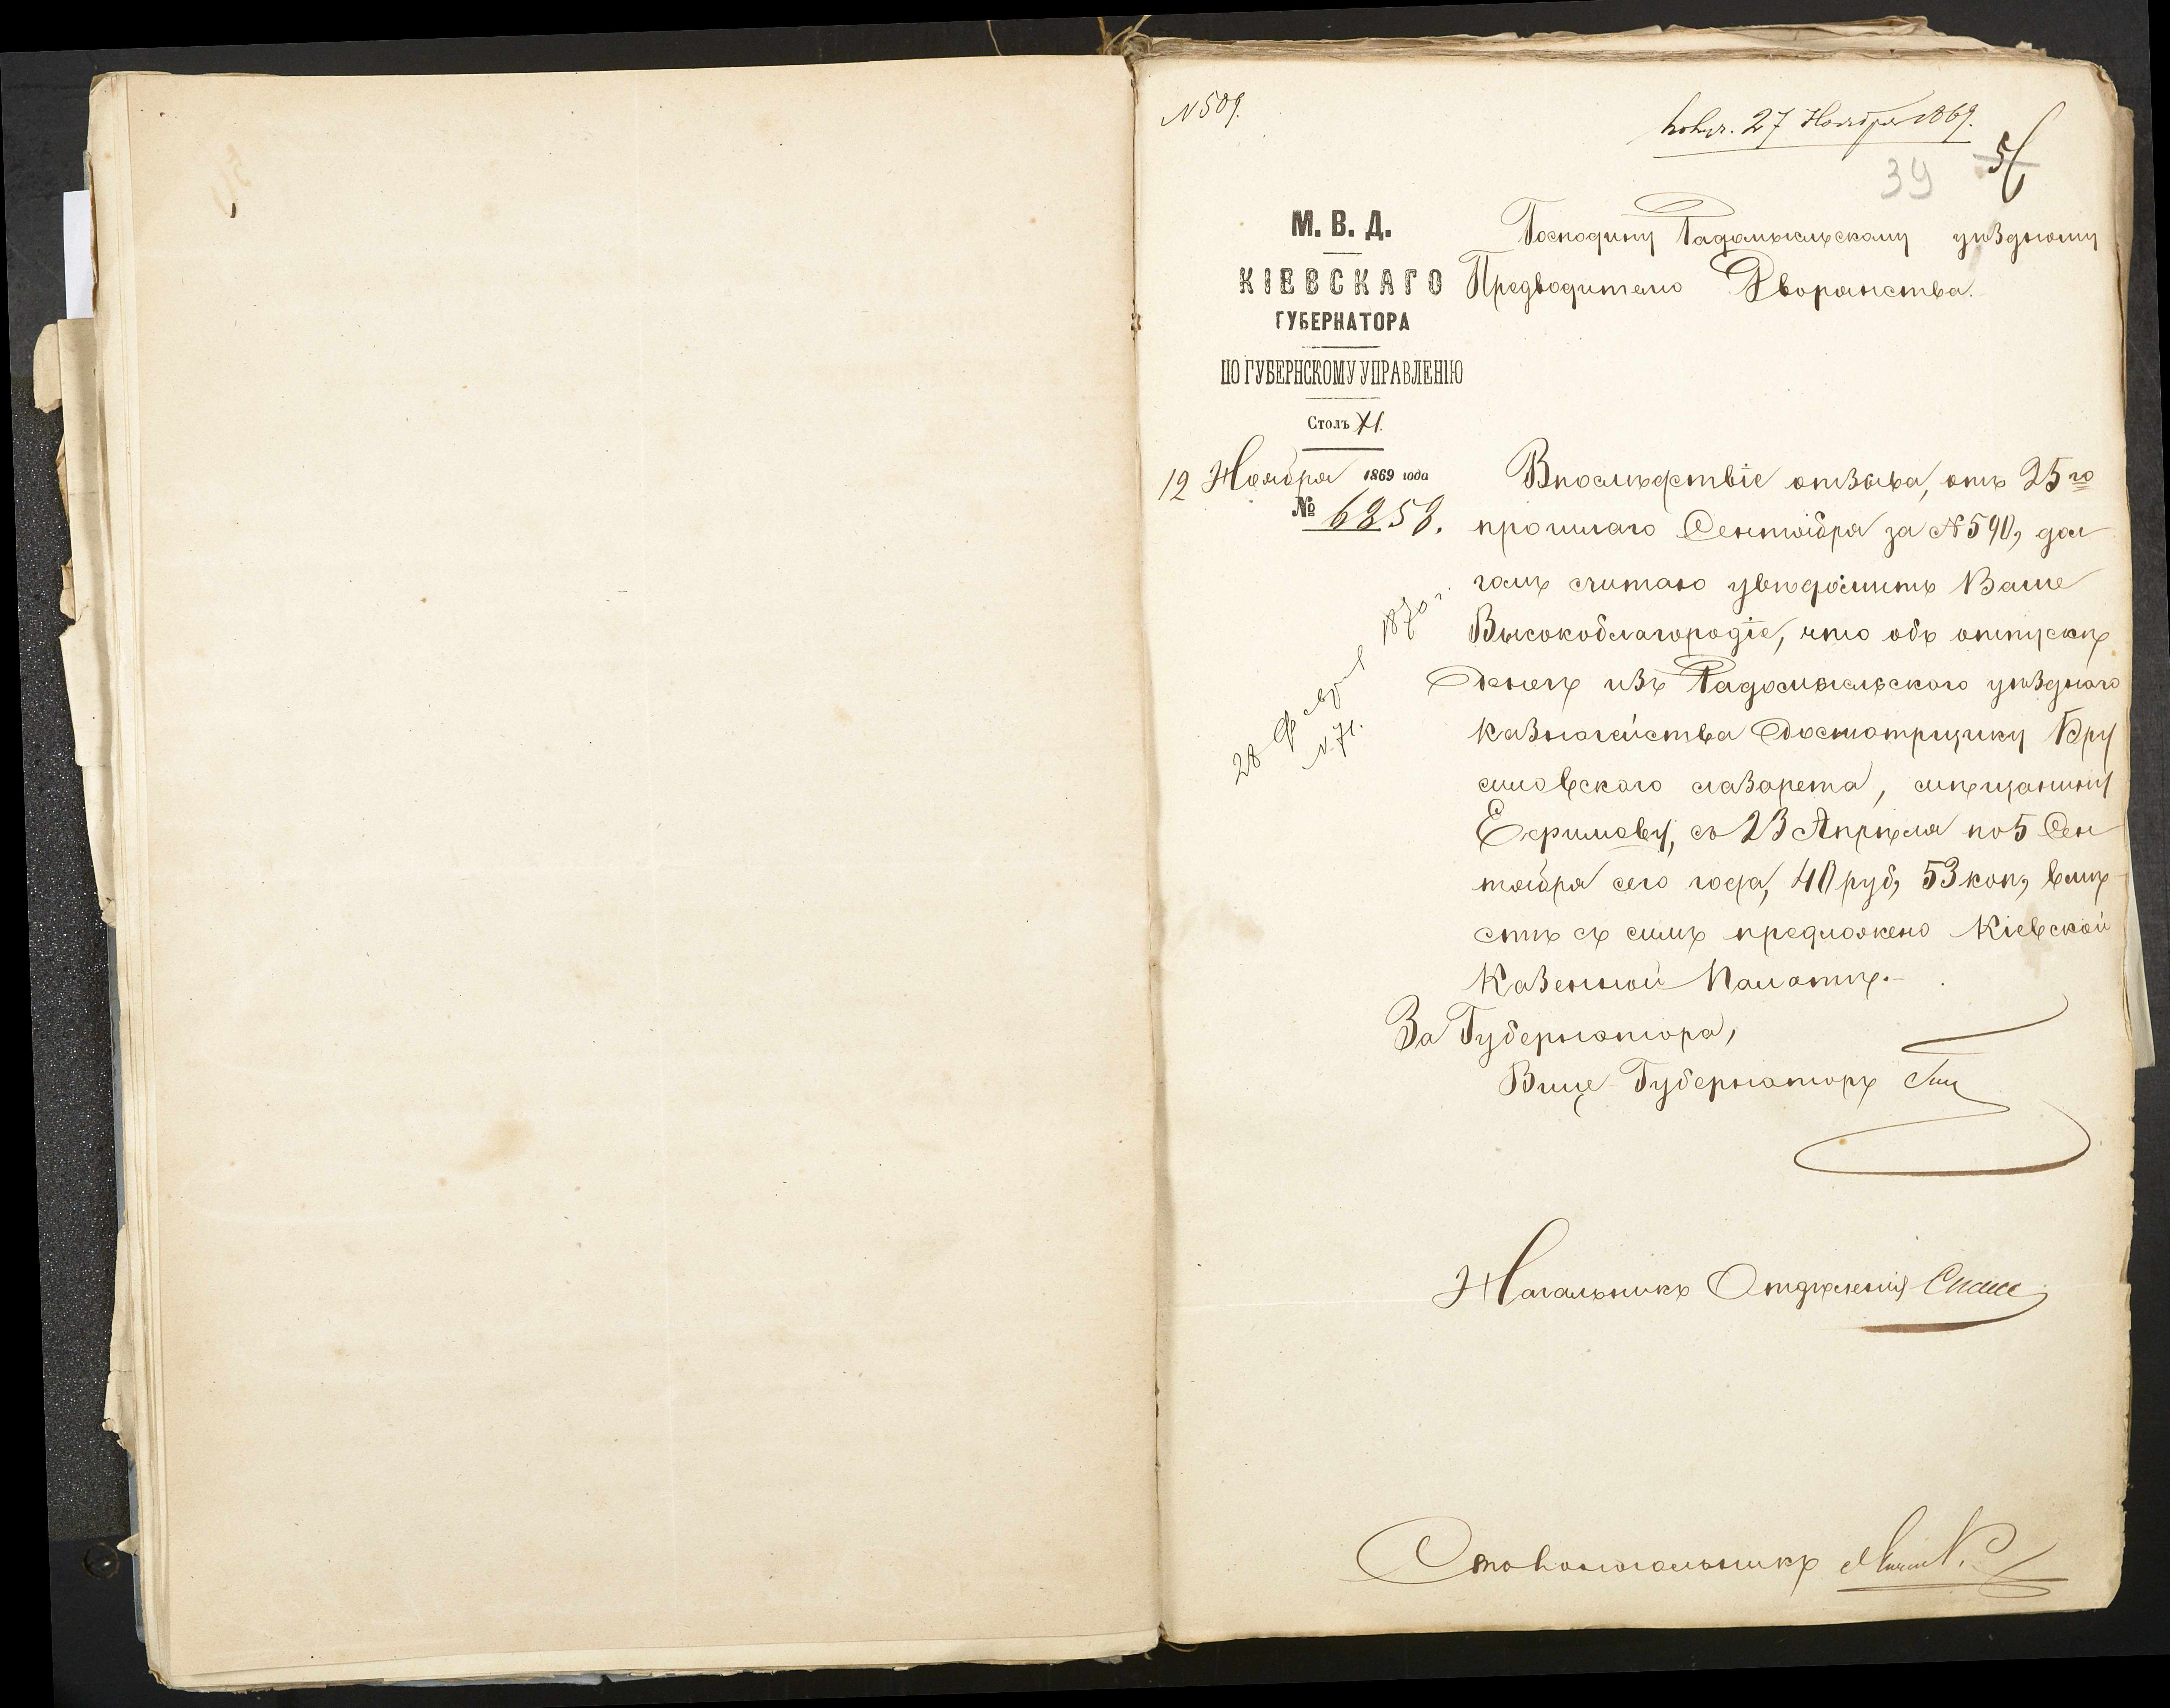 N 509.
Получ. 27 Ноября 1869.
39
М. В. Д.
КІЕВСКАГО
ГУБЕРНАТОРА
ПО ГУБЕРНСКОМУ УПРАВЛЕНІЮ
Столъ XI.
12 Ноября 1869 года
№ 6858.
28 Феврал 1870 г.
N 71.
Господину Радомысльскому уѣздному
Предводителю Дворянства.
Впослѣдствіе отзыва, отъ 25го
прошлаго Сентября за N 590, дол
гомъ считаю увѣдомить Ваше
Высокоблагородіе, что объ отпускѣ
денегъ изъ Радомысльскаго уѣзднаго
казначейства досмотрщику Бру
силовскаго лазарета, мѣщанину
Ефимову, съ 23 Апрѣля по 5 Сен
тября сего года, 40 руб, 53 коп, вмѣ
стѣ съ симъ предложено Кіевской
Казенной Палатѣ.
За Губернатора,
Вице-Губернаторъ
Начальникъ Отдѣленія
Столоначальникъ